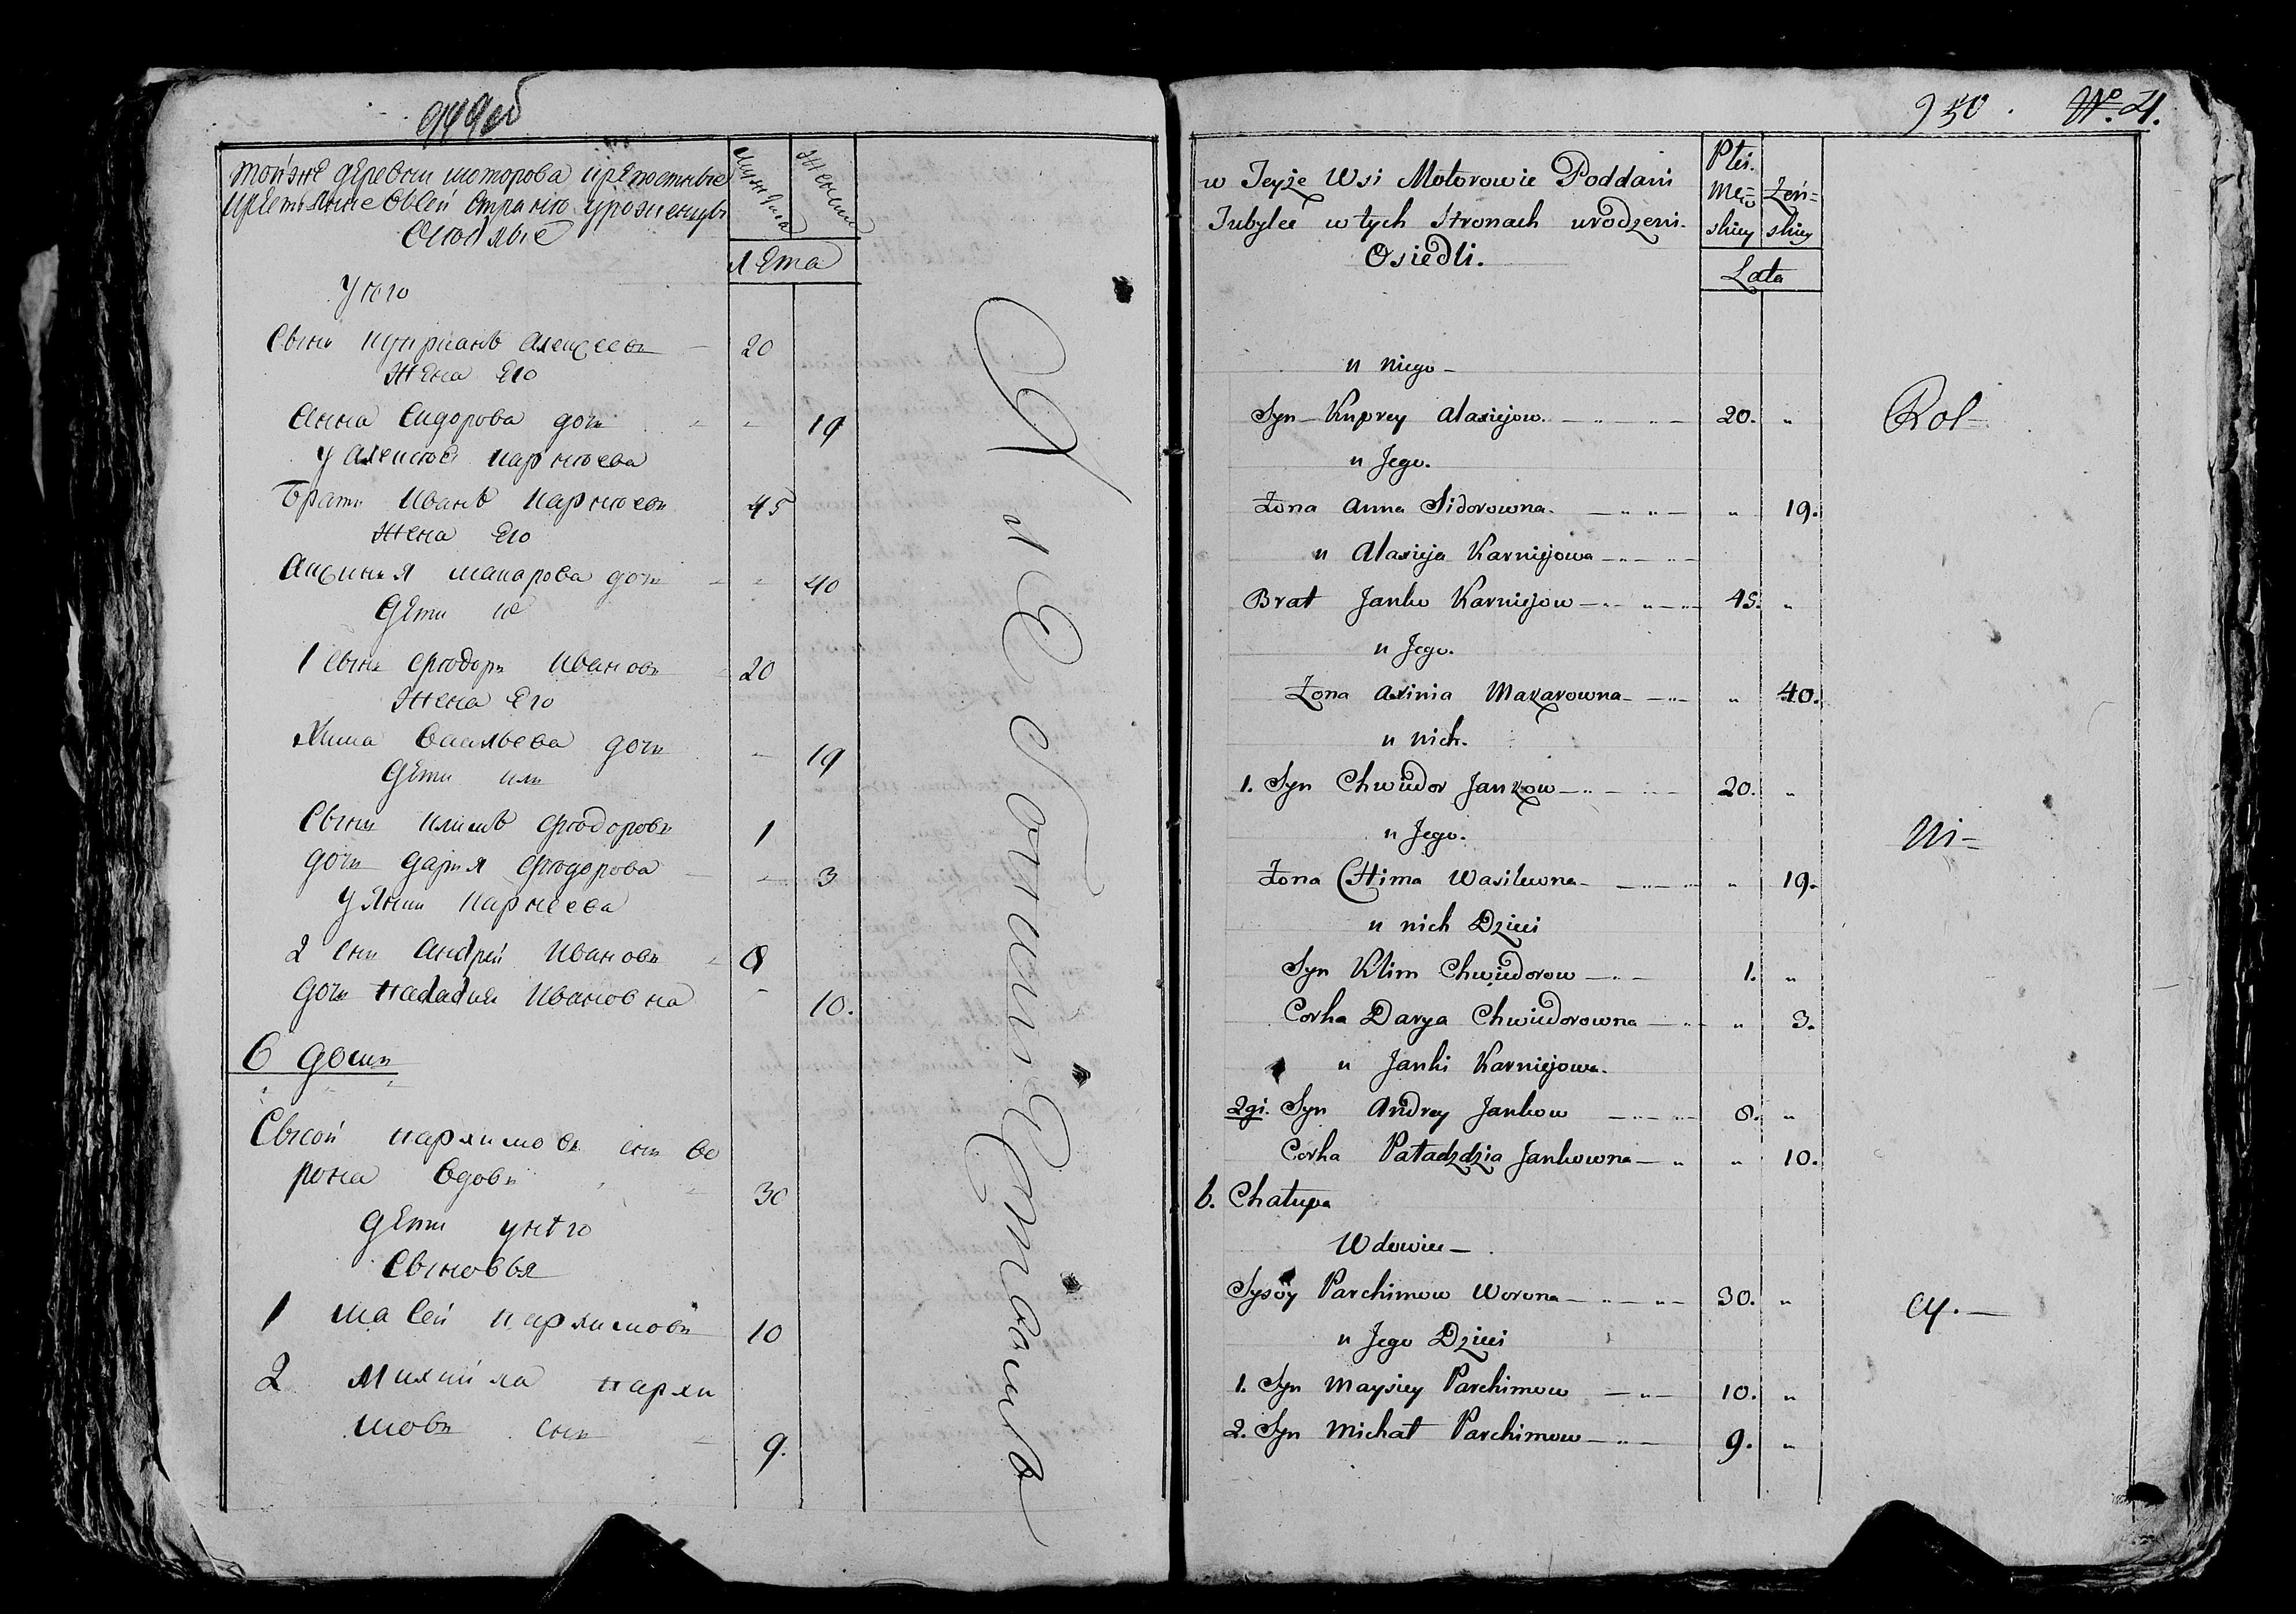 949об
тойже деревни моторова крепостные
крестьяне В сей странѣ уроженцы
Оселые
Мужеска
Женска
лета
У него
Сынъ Куприанъ Алексеевъ - 20
Жена Его
Анна Сидорова дочь " " 19
У Алексея Карнеева
Братъ Иванъ Карнеевъ 45
Жена Его
Аксинья макарова дочь - " 40
Дети их
1 Сынъ Фюдоръ Ивановъ - 20
Жена Его
Хима Васильева дочь - 19
Дети ихъ
Сынъ Климъ Фюдоровъ 1
дочь дарья Фюдорова - - 3
У Янки Карнеева
2 снъ Андрей Ивановъ " 8
Дочь Наталия Ивановна - 10.
6 домъ
Сысой пархимовъ снъ Во
рона Вдовъ " 30
Дети у него
Сыновья
1 Масей пархимовъ 10
2 Михайла пархи
мовъ снъ - 9.
950. No. 4.
w Teyże Wsi Motorowie Poddani
Jubylee w tych Stronach urodzeni.
Osiedli.
Płci.
Męz=
skiey
Żeń=
skiey
Lata
u niego -
Syn - Kuprey Alaxiejow. 20. "
u Jego.
Żona Anna Sidorowna. " 19.
u Alaxieja Karniejowa
Brat Janko Karniejow 45. "
u Jego.
Żona Axinia Makarowna " 40.
u nich.
1. Syn Chwiedor Jankow 20. "
u Jego.
Żona Chima Wasilewna " 19.
u nich Dzieci
Syn Klim Chwiedorow 1. "
Corka Darya Chwiedorowna " 3.
u Janki Karniejowa.
2gi. Syn Andrey Jankow 8. "
Corka Natadzdzia Jankowna " 10.
6. Chałupa
Wdowiec -
Sysoy Parchimow Worona 30. "
u Jego Dzieci
1. Syn Maysiey Parchimow 10. "
2. Syn Michał Parchimow 9. "
Rol-
Ni=
Cy. -